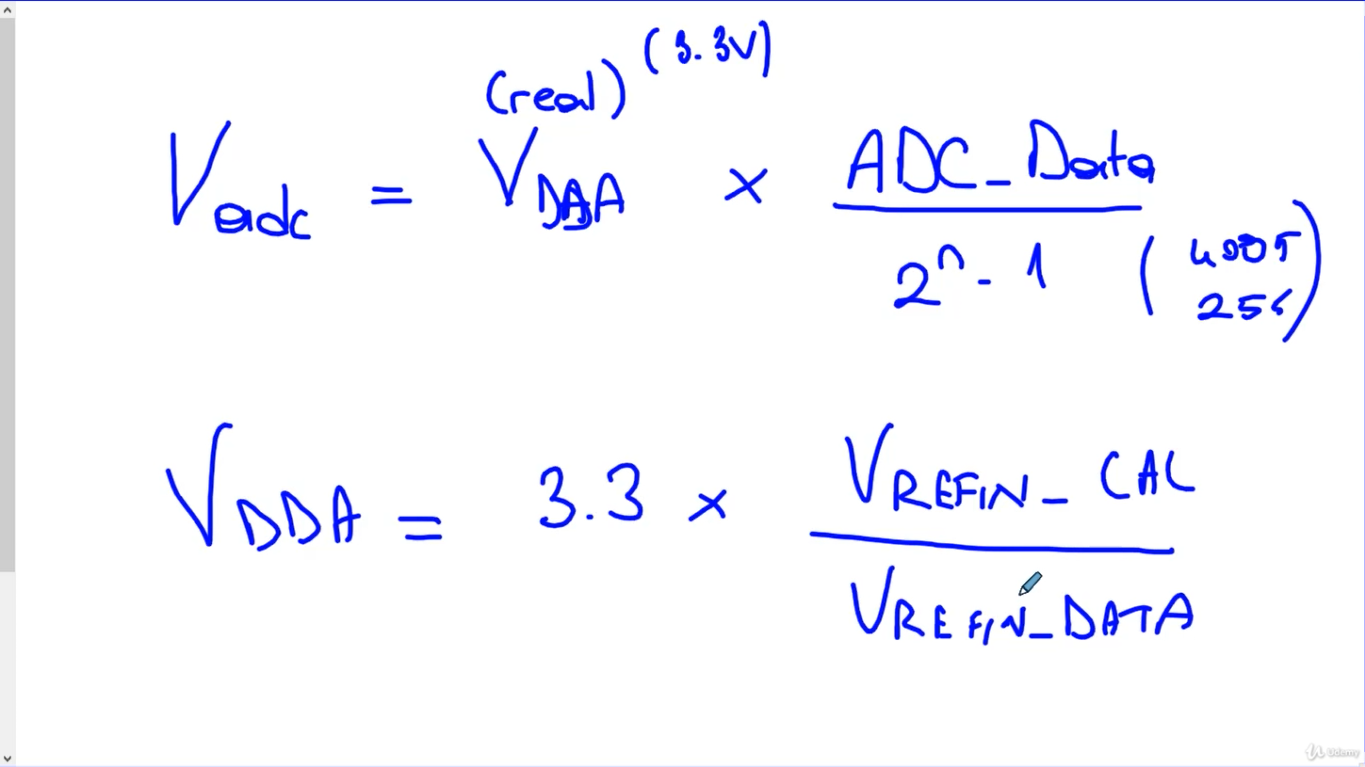 (real) (3.3V)
Vadc = VDDA × ADC_Data
2ⁿ - 1 ( 4095
256 )
VDDA = 3.3 × VREFIN_CAL
VREFIN_DATA
Udemy